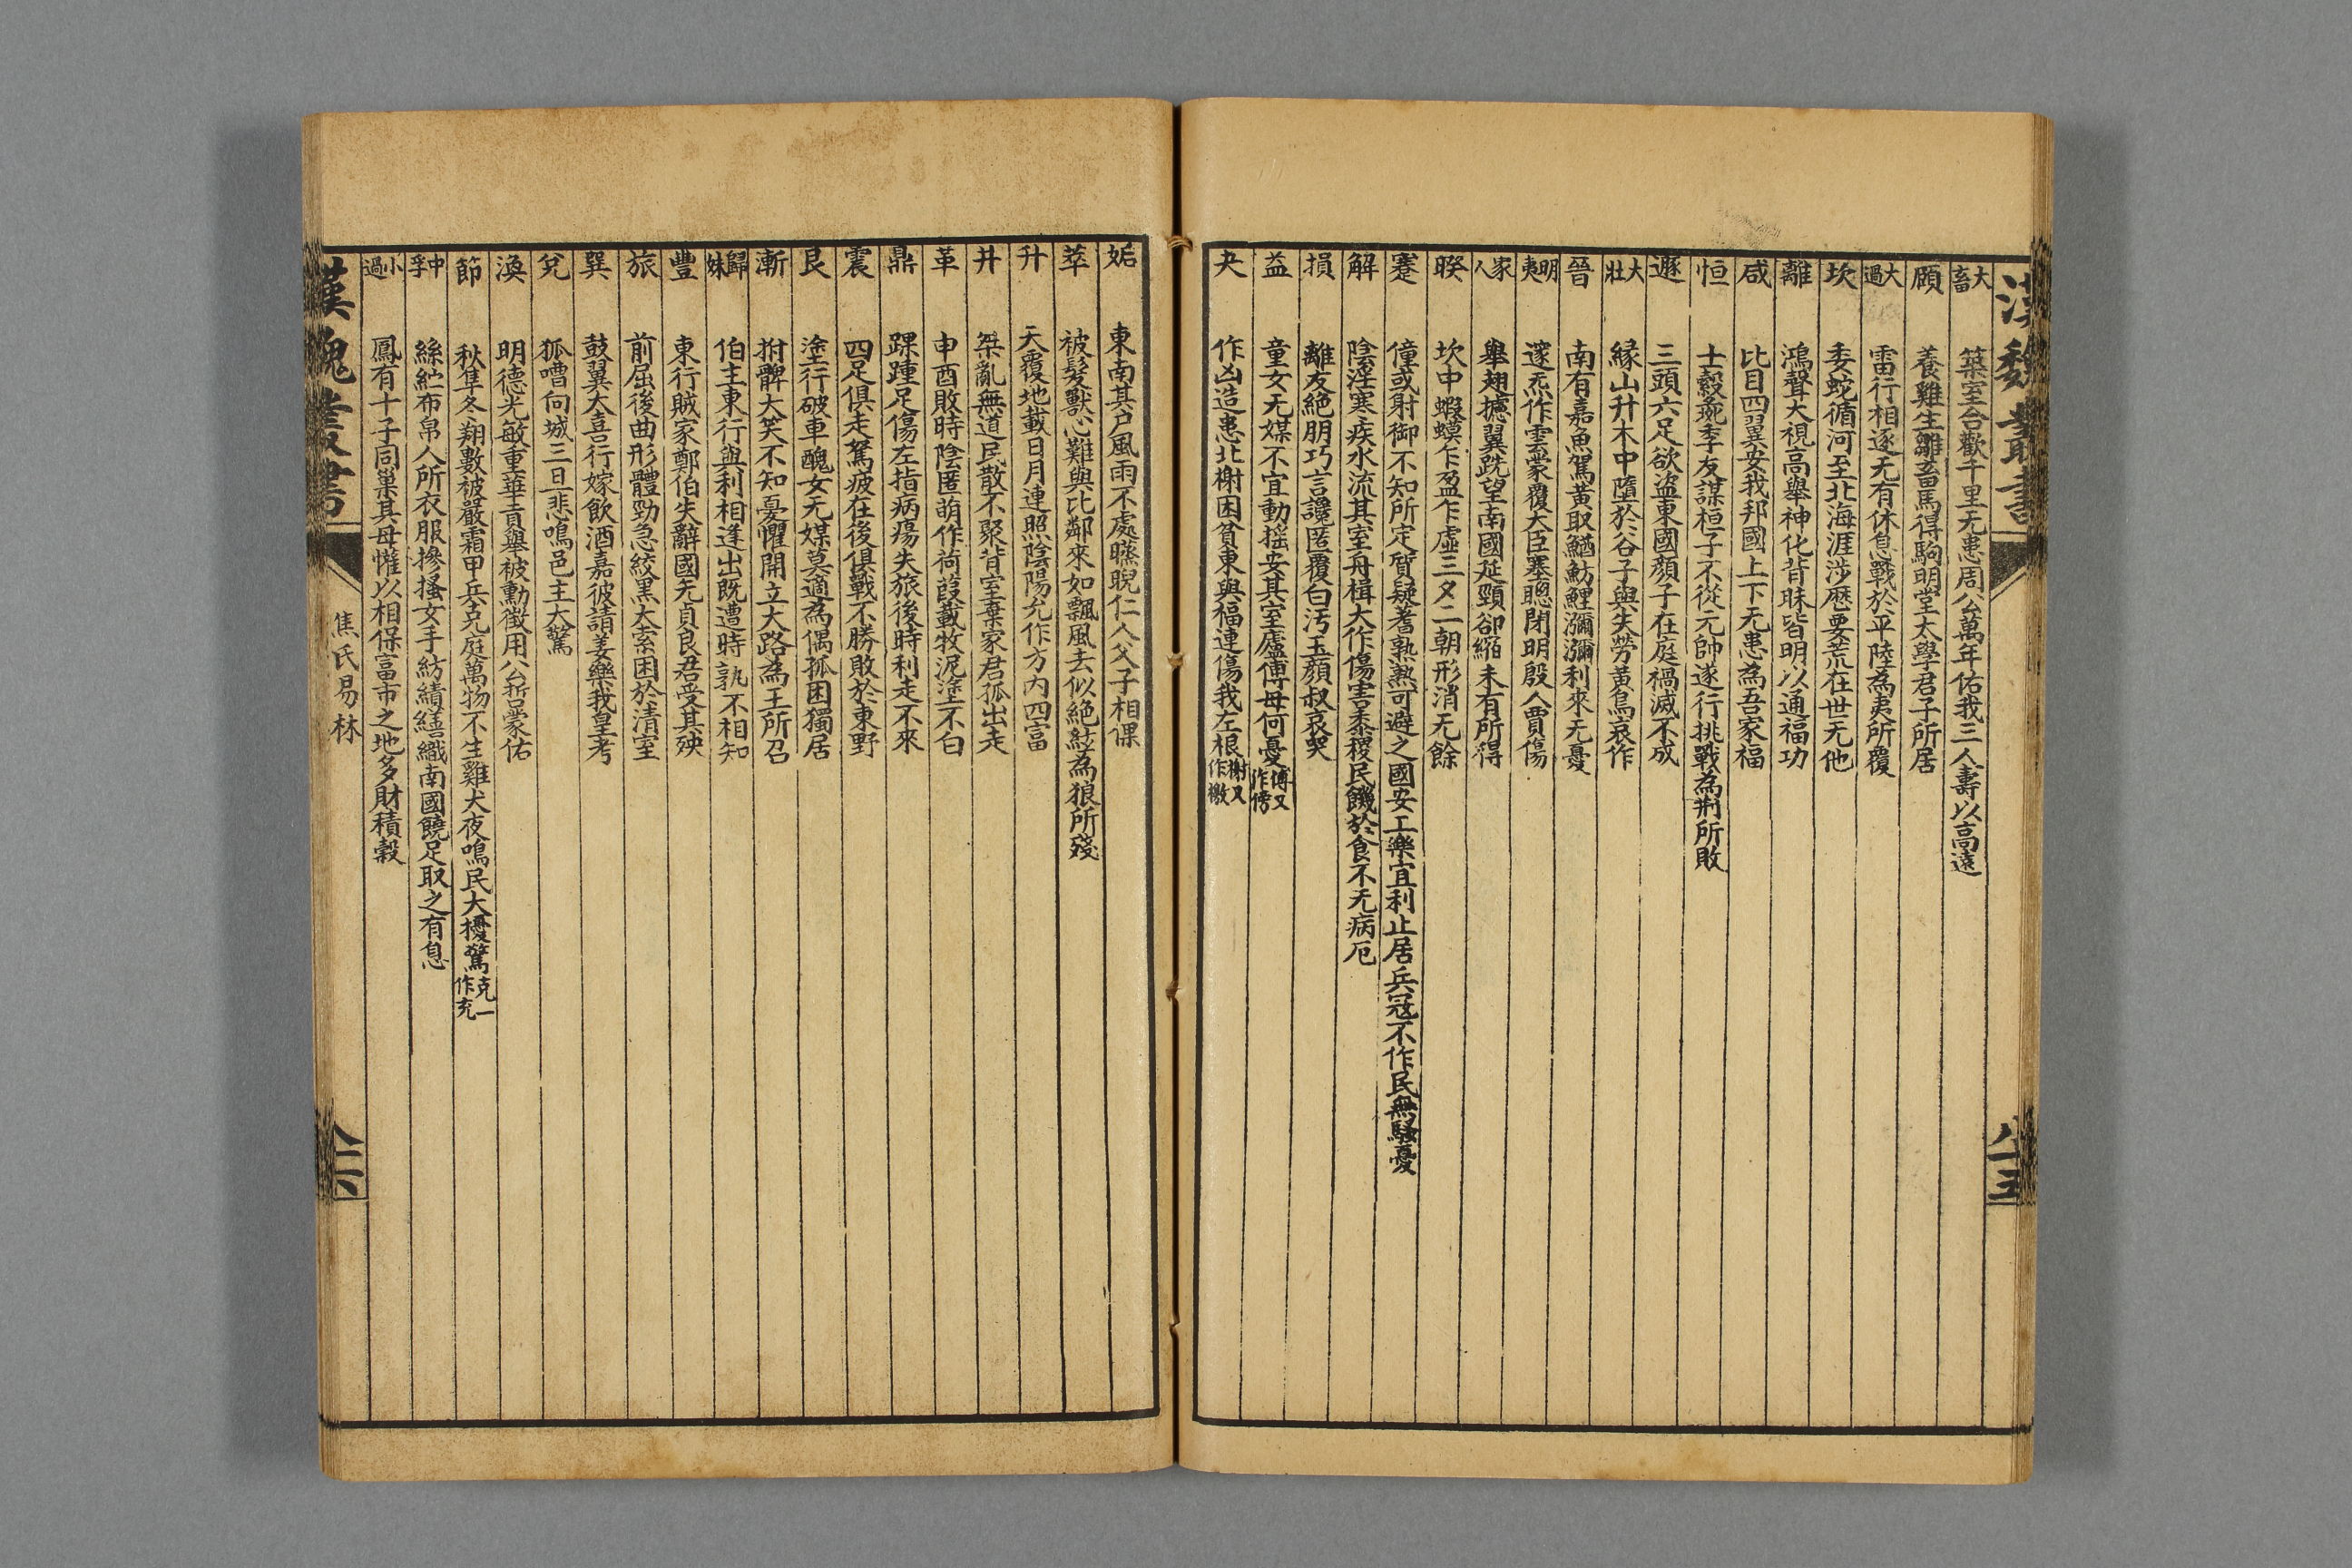 漢魏叢書
大畜 築室合歡千里无患周公萬年佑我二人壽以高遠
頤 養雞生雛畜馬得駒明堂太學君子所居
大過 雷行相逐无有休息戰於平陸為夷所覆
坎 委蛇循河至北海涯涉歷要荒在世无他
離 鴻聲大視高舉神化背昧皆明以通福功
咸 比目四翼安我邦國上下无患為吾家福
恒 士穀兔季友謀桓子不從元帥遂行挑戰為荆所敗
遯 三頭六足欲盜東國顏子在庭禍滅不成
大壯 緣山升木中墮於谷子與失勞黃鳥哀作
晉 南有嘉魚駕黃取鰌魴鯉瀰瀰利來无憂
明夷 邃炁作雲蒙覆大臣塞聰閉明殷人賈傷
家人 舉翅摅翼跳望南國延頸卻縮未有所得
睽 坎中蝦蟆乍盈乍虛三夕二朝形消无餘
蹇 僮或射御不知所定質疑蓍孰熟可避之國安工樂宜利止居兵寇不作民無騷憂
解 陰淫寒疾水流其室舟楫大作傷害黍稷民饑於食不无病厄
損 離友絶朋巧言讒匿覆白汚玉顏叔哀哭
益 童女无媒不宜動摇安其室廬傅母何憂傅又作傍
夬 作凶造患北榭困貧東與福連傷我左根榭又作檄
姤 東南其户風雨不處曣晛仁人父子相保
萃 被髮獸心難與比鄰來如飄風去似絶絃為狼所殘
升 天覆地載日月連照陰陽允作方内四富
井 桀亂無道民散不聚背室棄家君孤出走
革 申酉敗時陰匿萌作荷葭載牧泥塗不白
鼎 踝踵足傷左指病瘍失旅後時利走不來
震 四足俱走駑疲在後俱戰不勝敗於東野
艮 塗行破車醜女无媒莫適為偶孤困獨居
漸 拊髀大笑不知憂懼開立大路為王所召
歸妹 伯主東行與利相逢出既遭時孰不相知
豐 東行賊家鄭伯失辭國无貞良君受其殃
旅 前屈後曲形體勁急絞黑大索困於清室
巽 鼓翼大喜行嫁飲酒嘉彼請姜樂我皇考
兌 狐嘈向城三旦悲鳴邑主大驚
渙 明德光敏重華貢舉被勳徵用公哲蒙佑
節 秋隼冬翔數被嚴霜甲兵克庭萬物不生雞犬夜鳴民大擾驚克一作充
中孚 絲紵布帛人所衣服摻搔女手紡績繕織南國饒足取之有息
小過 鳳有十子同巢其母懽以相保富市之地多財積穀
漢魏叢書 焦氏易林